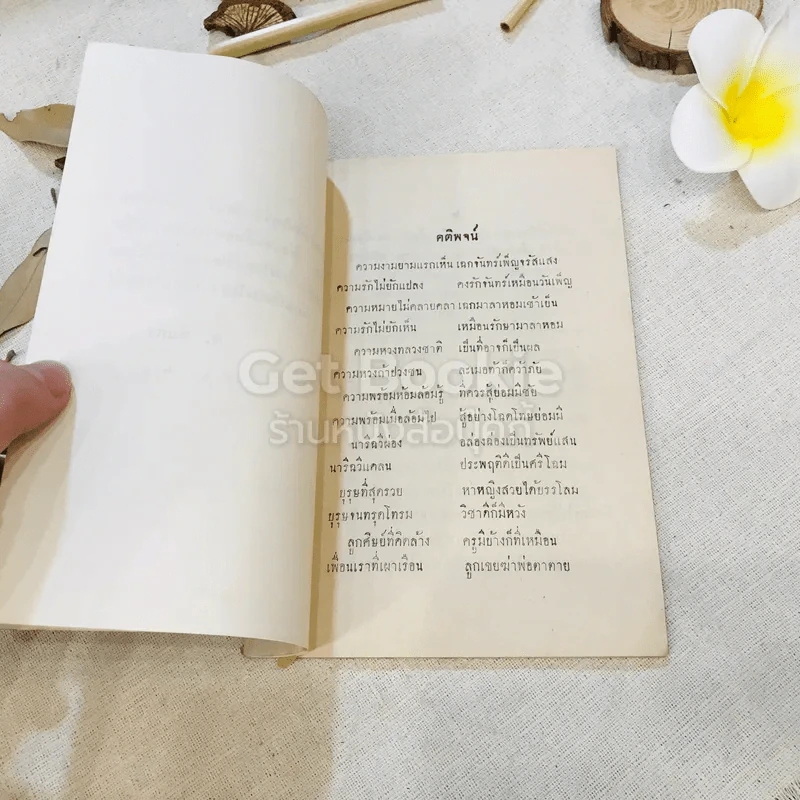 คติพจน์
ความงามยามแรกเห็น เฉกจันทร์เพ็ญจรัสแสง
ความรักไม่ยักแปลง คงรักจันทร์เหมือนวันเพ็ญ
ความหมายไม่คลายคลา เฉกมาลาหอมเช้าเย็น
ความรักไม่ยักเห็น เหมือนรักษามาลาหอม
ความหวงหลวงชาติ เย็นที่อาจก็เป็นผล
ความหวงถ้าปวงชน ละเมอทำก็คว้าภัย
ความพร้อมห้อมล้อมรู้ ที่ควรสู้ย่อมมีชัย
ความพร้อมเมื่อล้อมไป สู้อย่างโฉดโทษย่อมมี
นารีฉวีผ่อง ประพฤติดีเป็นศรีโฉม
นารีฉวีแคลน
บุรุษที่สุดรวย หาหญิงสวยได้บรรโลม
บุรุษจนทรุดโทรม วิชาดีก็มีหวัง
ลูกศิษย์ที่คิดล้าง ครูมีบ้างก็ที่เหมือน
เพื่อนเราที่เผาเรือน ลูกเขยฆ่าพ่อตาตาย
Get Bookie
ร้านหนังสือกุ๊กกี้